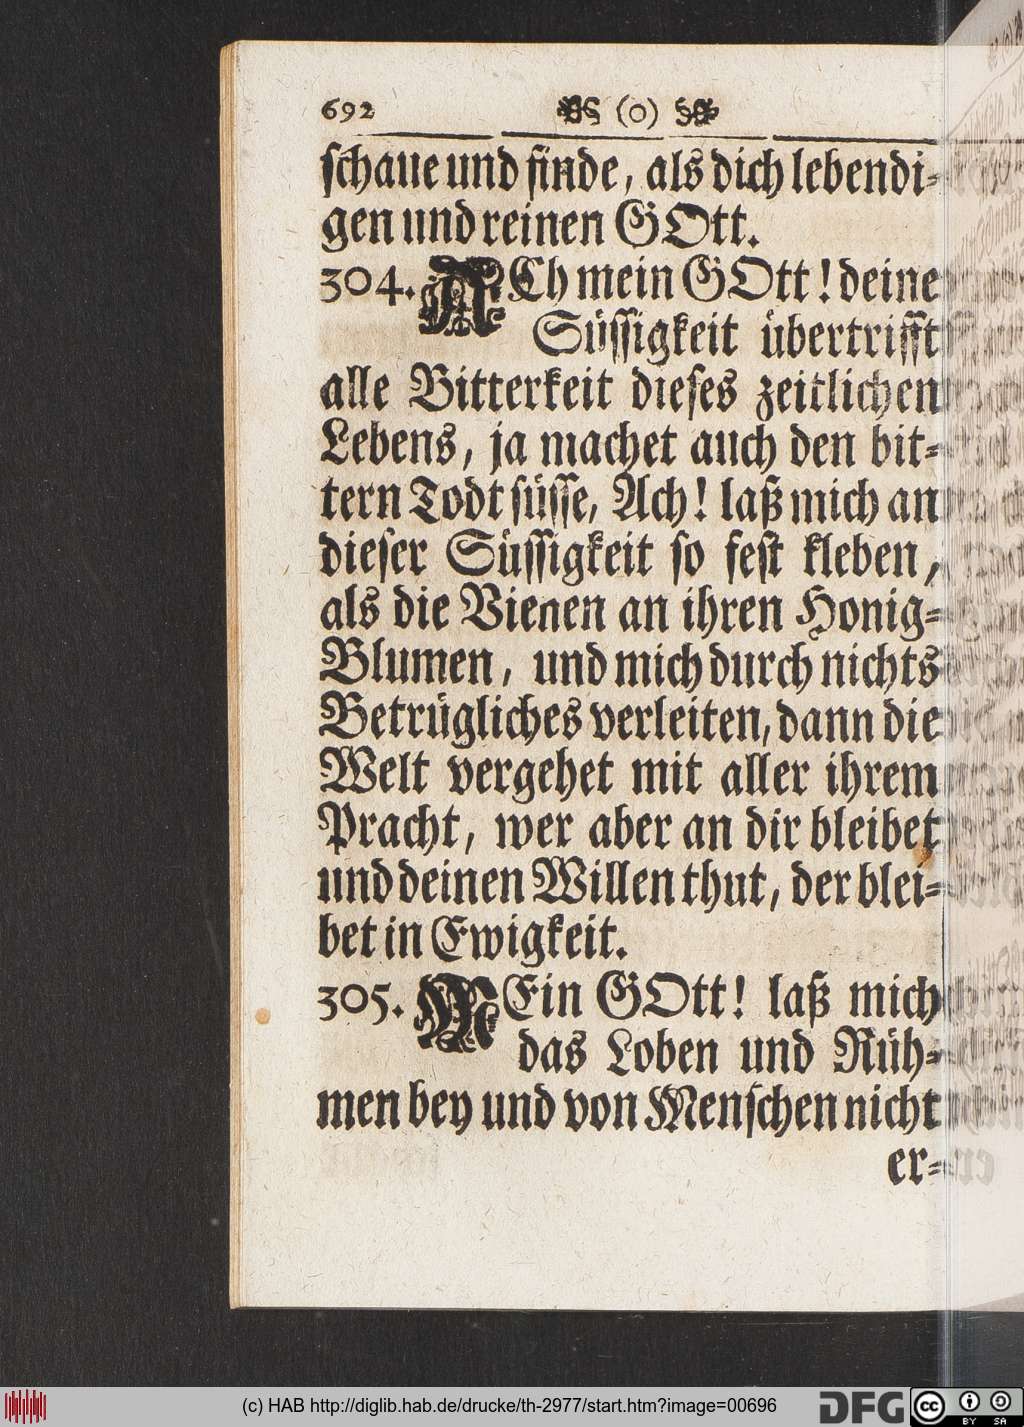 692 (o)
schaue und finde, als dich lebendi-
gen und reinen GOtt.
304. ACh mein GOtt! deine
Süssigkeit übertrifft
alle Bitterkeit dieses zeitlichen
Lebens, ja machet auch den bit-
tern Todt süsse, Ach! laß mich an
dieser Süssigkeit so fest kleben,
als die Bienen an ihren Honig-
Blumen, und mich durch nichts
Betrügliches verleiten, dann die
Welt vergehet mit aller ihrem
Pracht, wer aber an dir bleibet
und deinen Willen thut, der blei-
bet in Ewigkeit.
305. MEin GOtt! laß mich
das Loben und Rüh-
men bey und von Menschen nicht
er-
(c) HAB http://diglib.hab.de/drucke/th-2977/start.htm?image=00696
DFG
cc BY SA